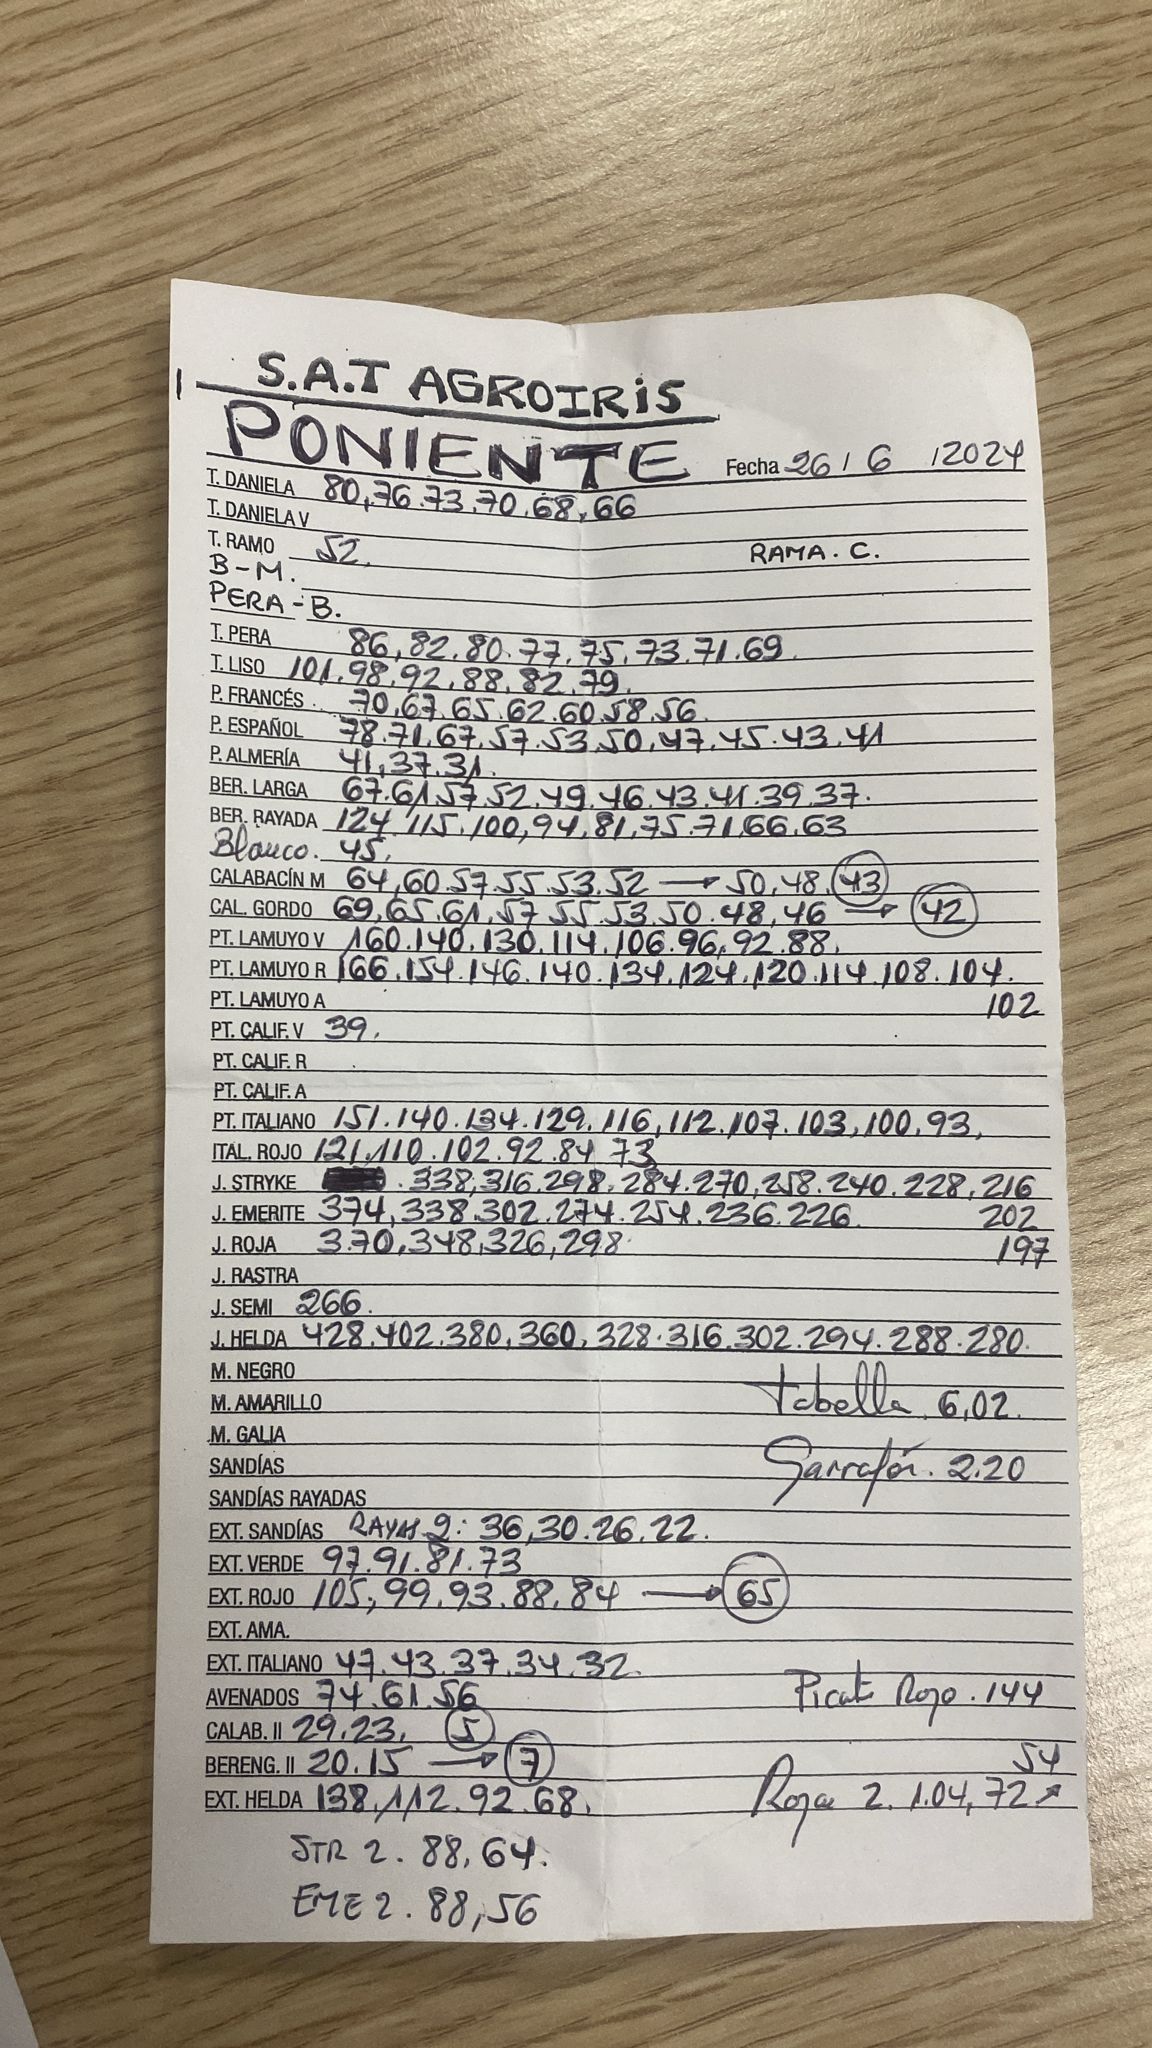 S.A.T AGROIRIS
PONIENTE Fecha 26 / 6 / 2024
T. DANIELA 80,76.73.70.68,66
T. DANIELA V
T. RAMO 52. RAMA. C.
B-M.
PERA-B.
T. PERA 86,82.80.77.75.73.71.69.
T. LISO 101.98,92.88.82.79.
P. FRANCÉS 70,67.65.62.60.58.56
P. ESPAÑOL 78.71.67.57.53.50.47.45.43.41
P. ALMERÍA 41,37.31.
BER. LARGA 67.61.57.52.49.46.43.41.39.37.
BER. RAYADA 124.115.100,94,81,75.71,66.63
Blanco. 45.
CALABACÍN M 64,60.57.55.53.52 → 50,48,43
CAL. GORDO 69,65.61,57.55.53.50.48,46 → 42
PT. LAMUYO V 160.140.130.114.106.96,92.88.
PT. LAMUYO R 166.154.146.140.134.124.120.114.108.104.
PT. LAMUYO A 102
PT. CALIF. V 39.
PT. CALIF. R
PT. CALIF. A
PT. ITALIANO 151.140.134.129.116,112.107.103,100.93,
ITAL. ROJO 121,110.102.92.84 73
J. STRYKE 338,316.298.284.270,258.240.228,216
J. EMERITE 374,338,302.274.254.236.226 202
J. ROJA 370,348,326,298. 197
J. RASTRA
J. SEMI 266.
J. HELDA 428.402.380,360,328.316.302.294.288.280.
M. NEGRO
M. AMARILLO tabella 6,02.
M. GALIA
SANDÍAS Garrafón. 2.20
SANDÍAS RAYADAS
EXT. SANDÍAS RAYAS 2: 36,30.26.22.
EXT. VERDE 97.91.81.73
EXT. ROJO 105,99.93.88.84 → 65
EXT. AMA.
EXT. ITALIANO 47.43.37.34.32.
AVENADOS 74.61.56 Picat Rojo. 144
CALAB. II 29.23. 5
BERENG. II 20.15 → 7 54
EXT. HELDA 138,112.92.68. Roja 2. 1.04,72
STR 2. 88,64.
EME 2. 88,56